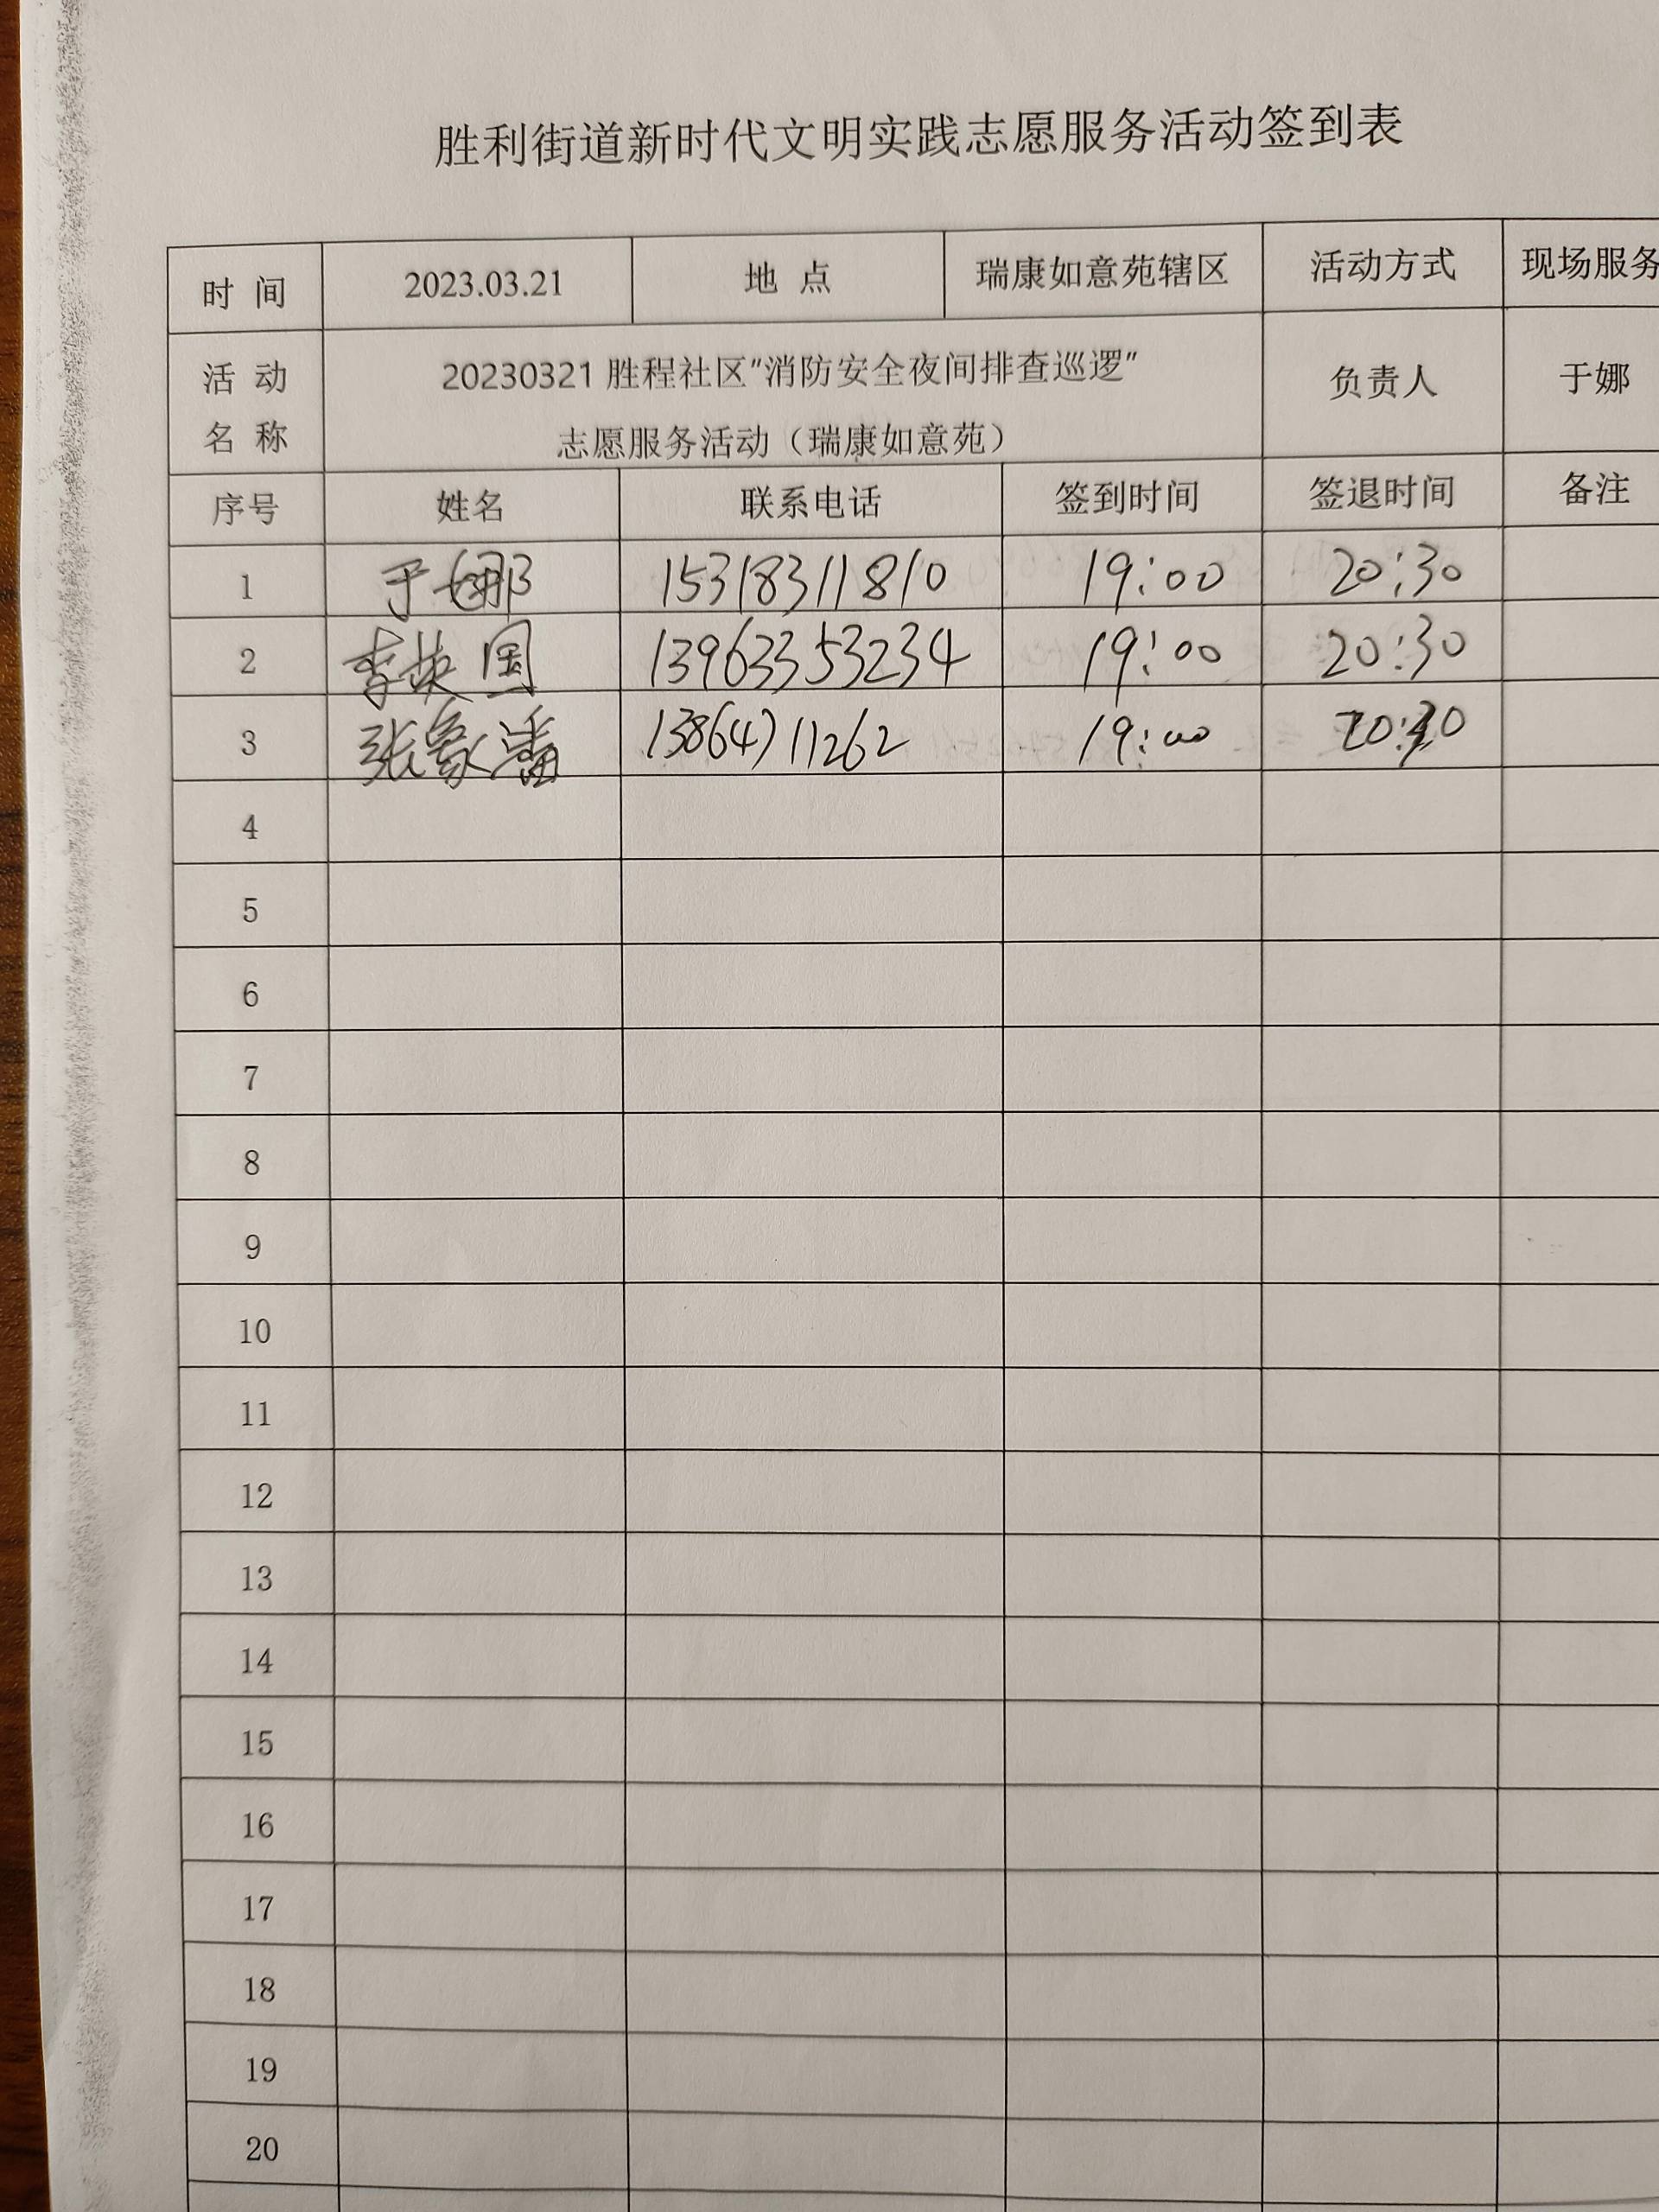 胜利街道新时代文明实践志愿服务活动签到表
时 间 2023.03.21 地 点 瑞康如意苑辖区 活动方式 现场服务
活 动 名 称 20230321 胜程社区"消防安全夜间排查巡逻" 负责人 于娜
志愿服务活动（瑞康如意苑）
序号 姓名 联系电话 签到时间 签退时间 备注
1 于娜 15318311810 19:00 20:30
2 李英国 13963353234 19:00 20:30
3 张象潘 13864711262 19:00
4
5
6
7
8
9
10
11
12
13
14
15
16
17
18
19
20